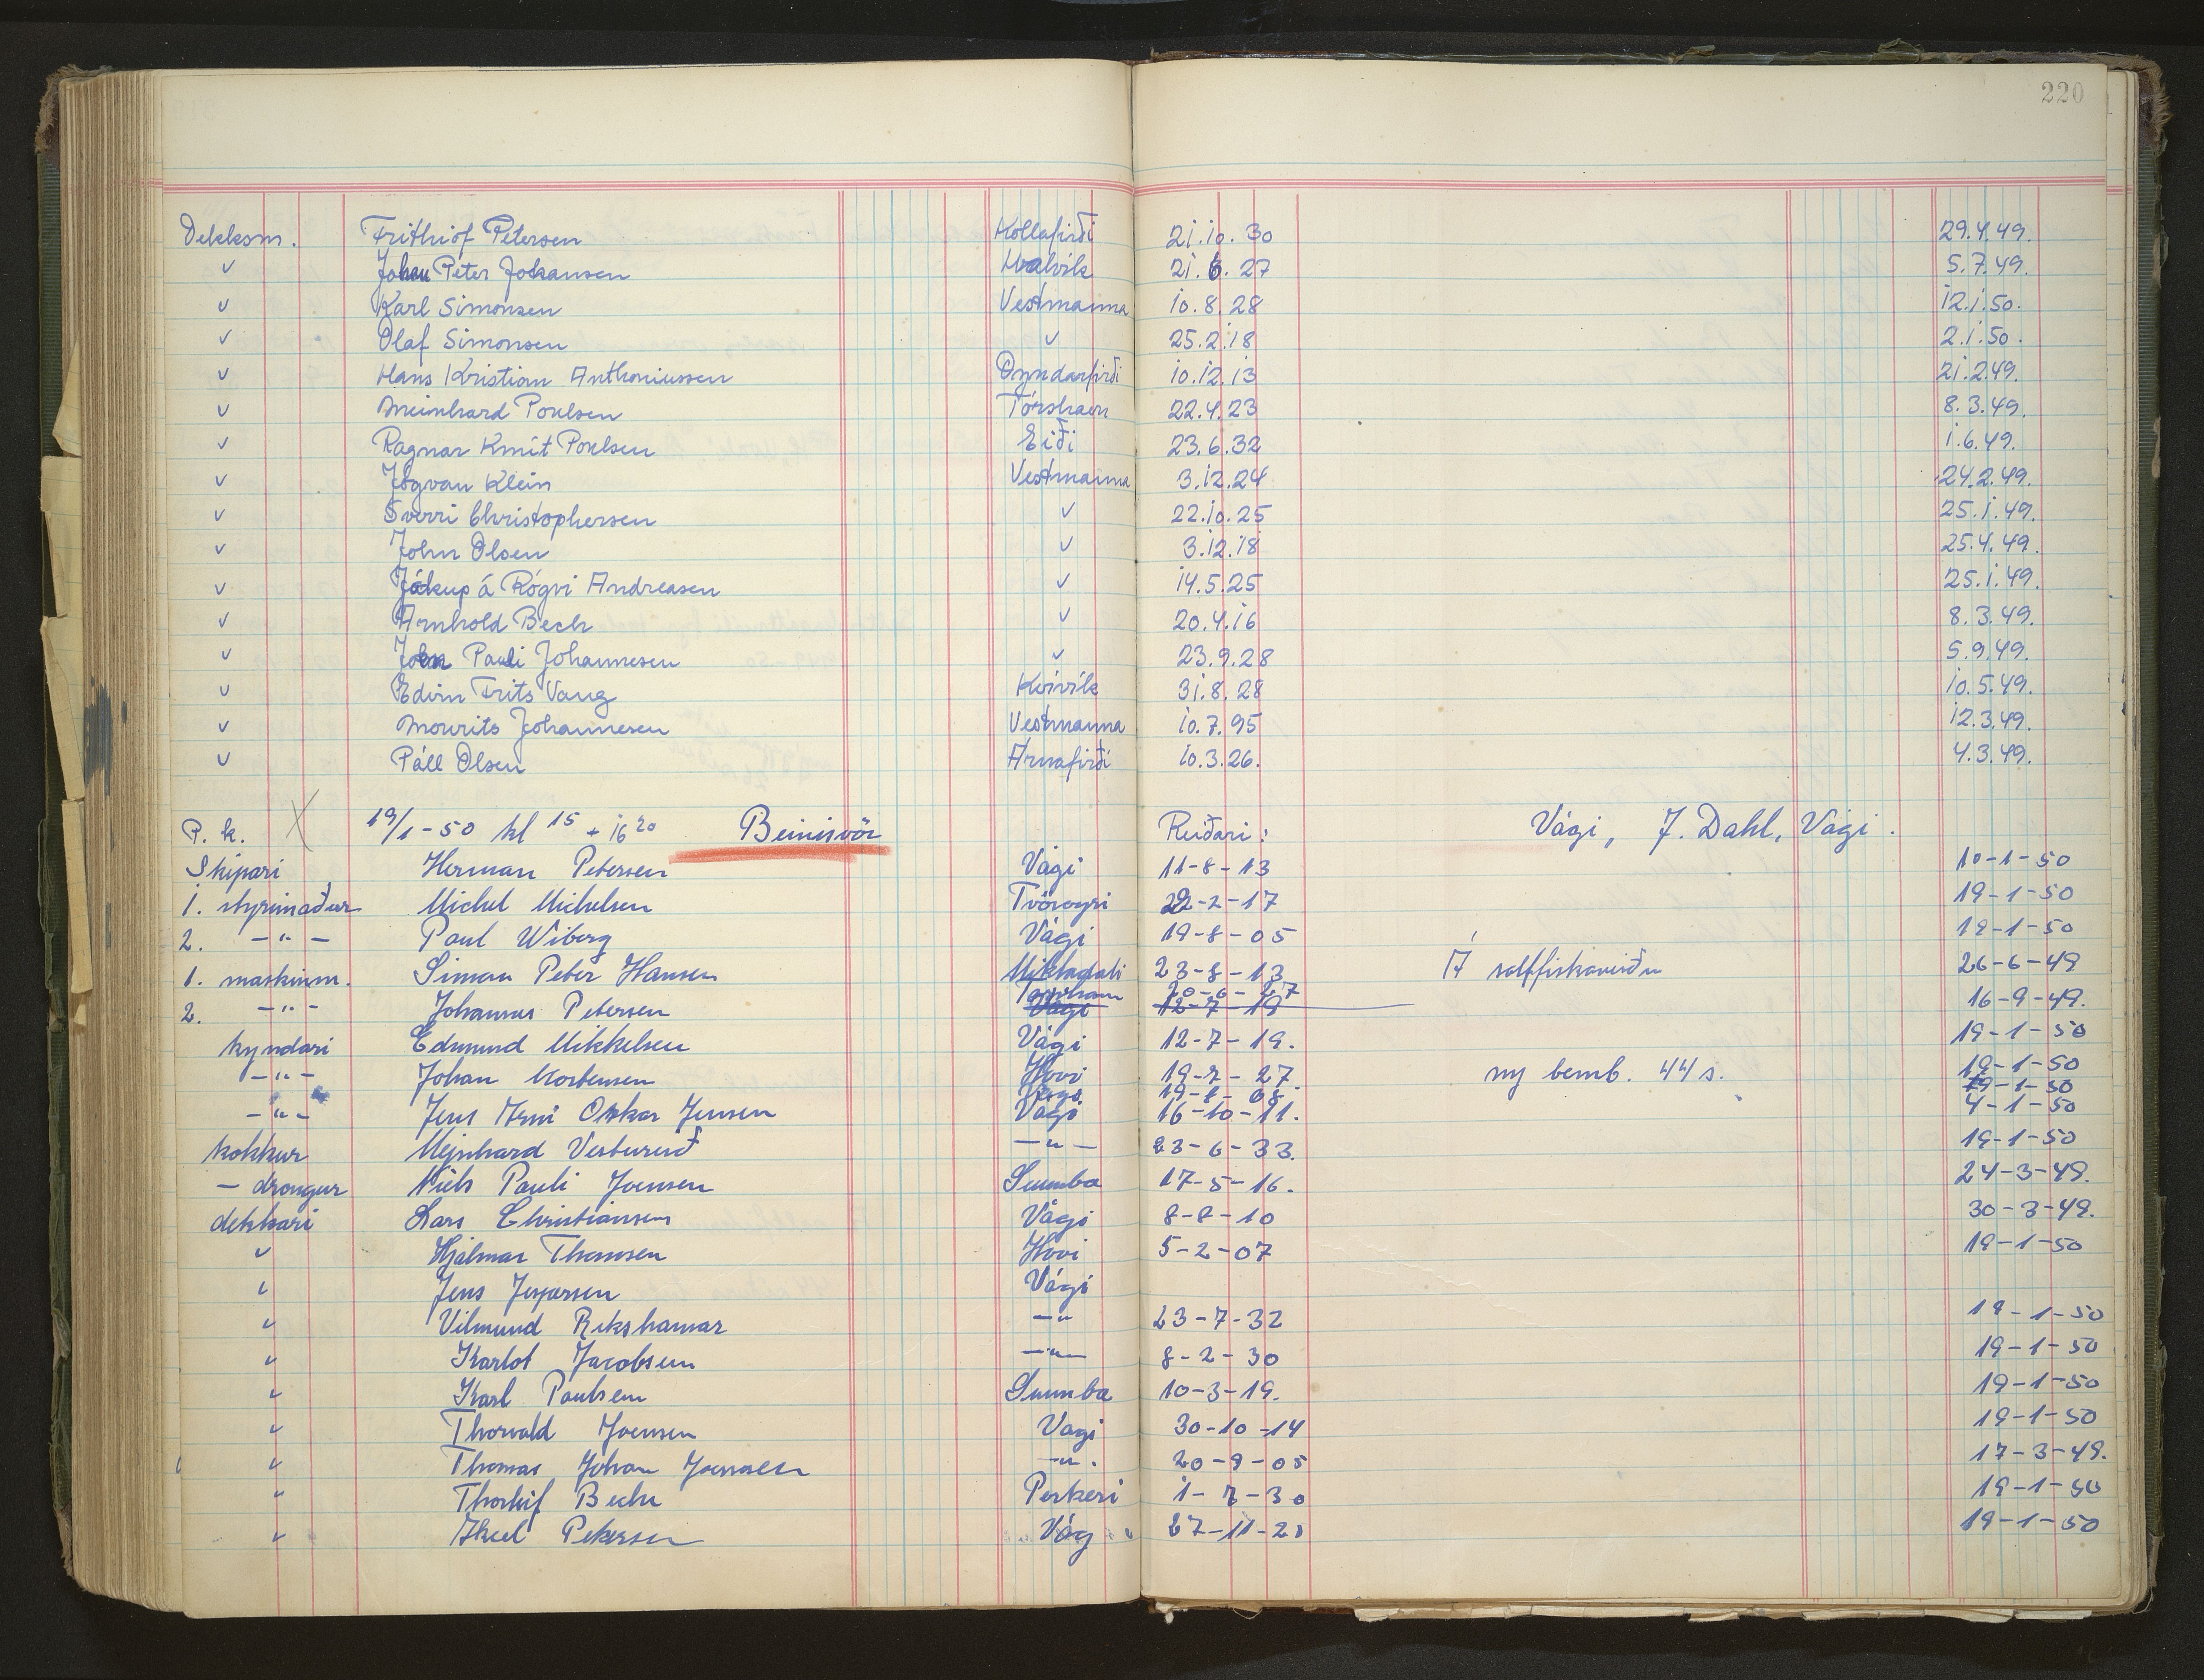 220
Dekksm. Frithiof Petersen Kollafirði 21.10.30 29.4.49.
v Johan Peter Johansen Hvalvík 21.6.27 5.7.49.
v Karl Simonsen Vestmanna 10.8.28 12.1.50.
v Olaf Simonsen v 25.2.18 2.1.50.
v Hans Kristian Anthoniussen Oyndarfirði 10.12.13 21.2.49.
v Meinhard Poulsen Tórshavn 22.4.23 8.3.49.
v Ragnar Knút Poulsen Eiði 23.6.32 1.6.49.
v Jógvan Klein Vestmanna 3.12.24 24.2.49.
v Sverri Christophersen v 22.10.25 25.1.49.
v John Olsen v 3.12.18 25.4.49.
v Jákup á Rógvi Andreasen v 14.5.25 25.1.49.
v Arnhold Bech v 20.4.16 8.3.49.
v John Pauli Johannesen v 23.9.28 5.9.49.
v Edvin Frits Vang Kvívík 31.8.28 10.5.49.
v Mourits Johannesen Vestmanna 10.7.95 12.3.49.
v Páll Olsen Árnafirði 10.3.26. 4.3.49.
P. k. X 19/1-50 kl 15 + 16 20 Beinisvør Reiðari: Vági, J. Dahl, Vági.
Skipari Herman Petersen Vági 11-8-13 10-1-50
1. stýrimaður Michel Michelsen Tvöroyri 22-2-17 19-1-50
2. -"- Paul Wiberg Vági 19-8-05 19-1-50
1. maskinm. Simon Peter Hansen Mikladali 23-8-13 Á saltfiskaveiðu 26-6-49
Tórshavn 20-6-27
2. -"- Johannus Petersen Vági 12-7-19 16-9-49.
kyndari Edmund Mikkelsen Vági 12-7-19. 19-1-50
-"- Johan Mortensen Hovi 19-7-27. ny bemb. 44 s. 19-1-50
19-1-50
-"- Jens Arni Oskar Jensen Vági 16-10-11. 4-1-50
kokkur Mejnhard Vesturend -"- 23-6-33. 19-1-50
- drongur Niels Pauli Joensen Sumba 17-5-16. 24-3-49.
dekkari Lars Christiansen Vági 8-8-10 30-3-49.
v Hjalmar Thomsen Hovi 5-2-07 19-1-50
v Jens Jespersen Vági
v Vilmund Rekshamar -"- 23-7-32 19-1-50
v Karlot Jacobsen -"- 8-2-30 19-1-50
v Karl Poulsen Sumba 10-3-19. 19-1-50
v Thorvald Joensen Vagi 30-10-14 19-1-50
v Thomas Johan Joensen -"- 20-9-05 17-3-49.
" Thorleif Bech Porkeri 1-7-30 19-1-50
v Aksel Petersen Vág 27-11-20 19-1-50